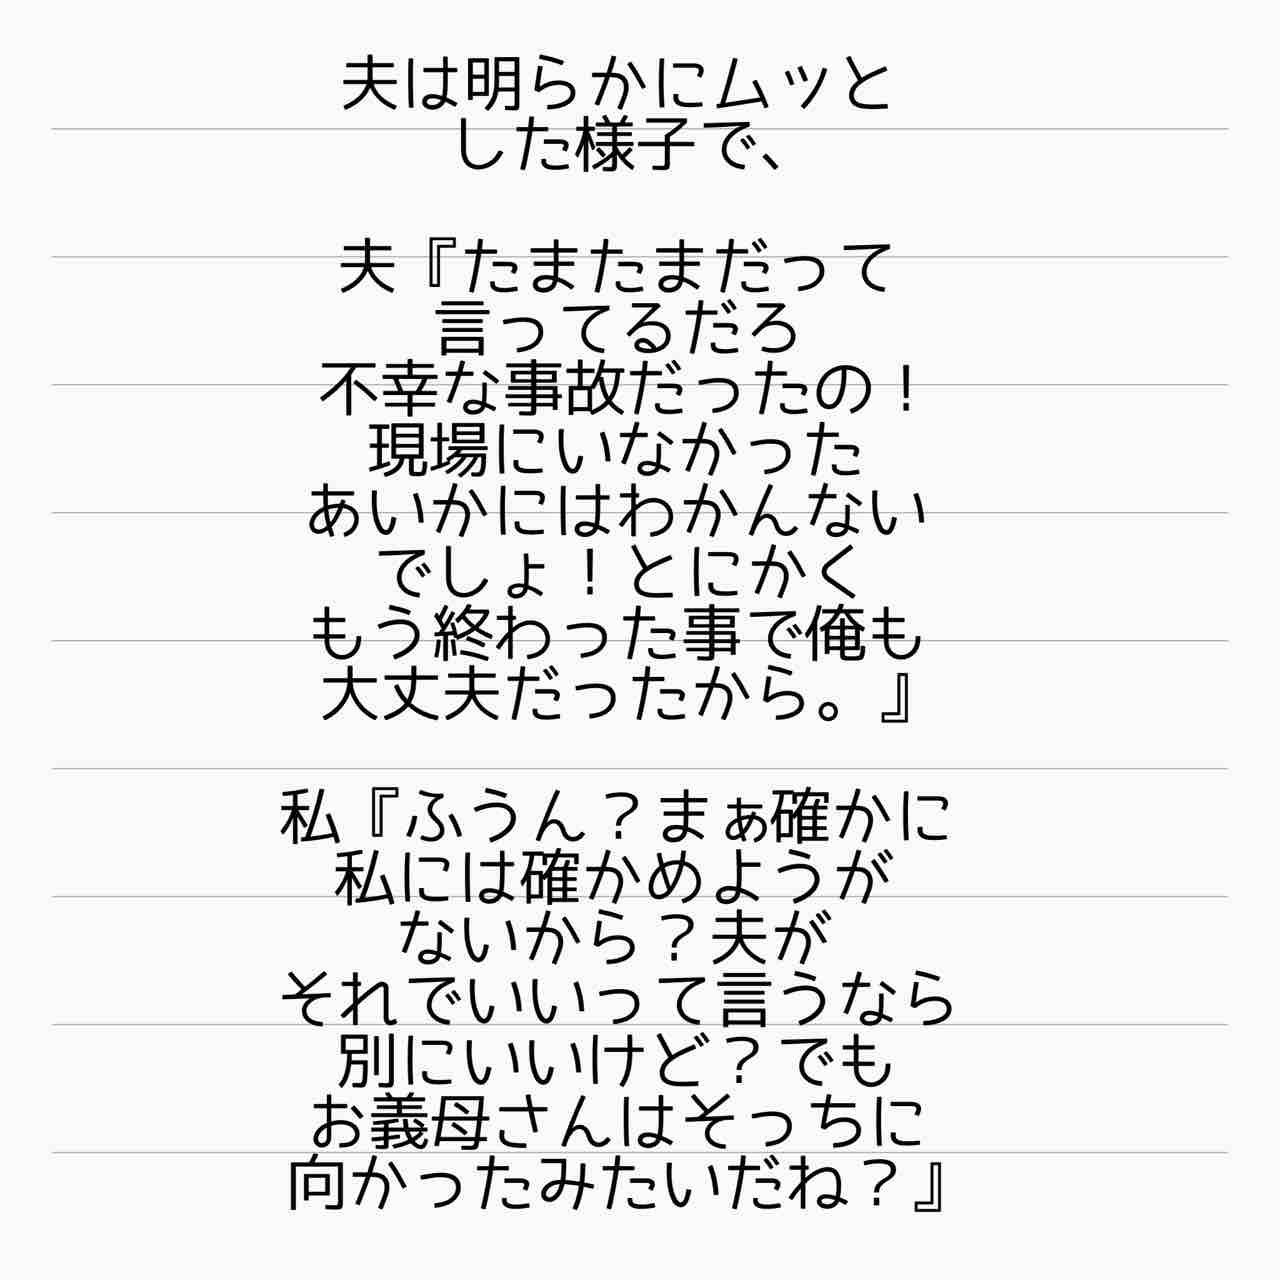 夫は明らかにムッと
した様子で、
夫『たまたまだって
言ってるだろ
不幸な事故だったの！
現場にいなかった
あいかにはわかんない
でしょ！とにかく
もう終わった事で俺も
大丈夫だったから。』
私『ふうん？まぁ確かに
私には確かめようが
ないから？夫が
それでいいって言うなら
別にいいけど？でも
お義母さんはそっちに
向かったみたいだね？』